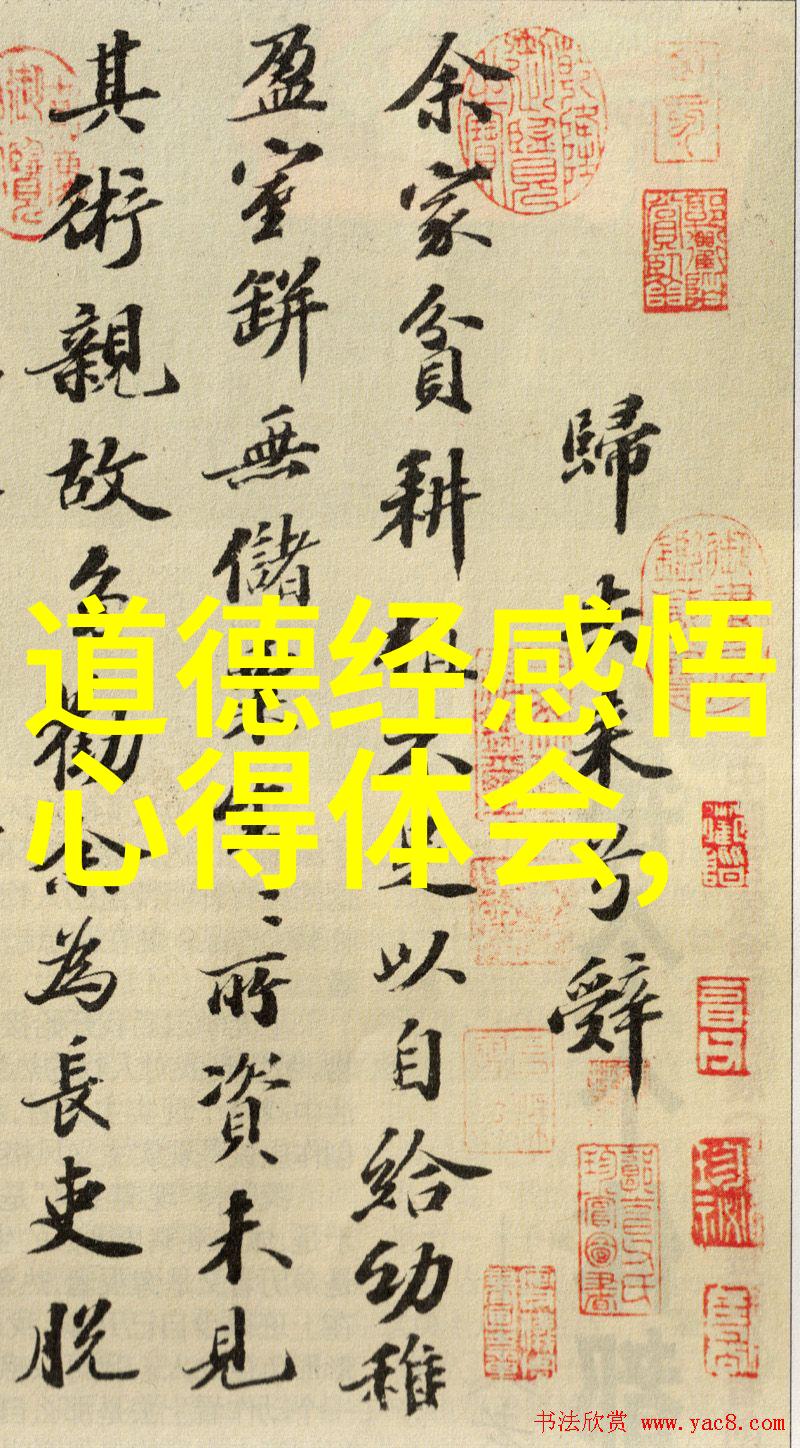 歸去来兮辭
余家貧耕植不足以自給幼稚
盈室缾無儲粟生〻所資未見
其術親故多勸余為長吏脱
道德经感悟
心得体会,
书法欣赏 www.yac8.com